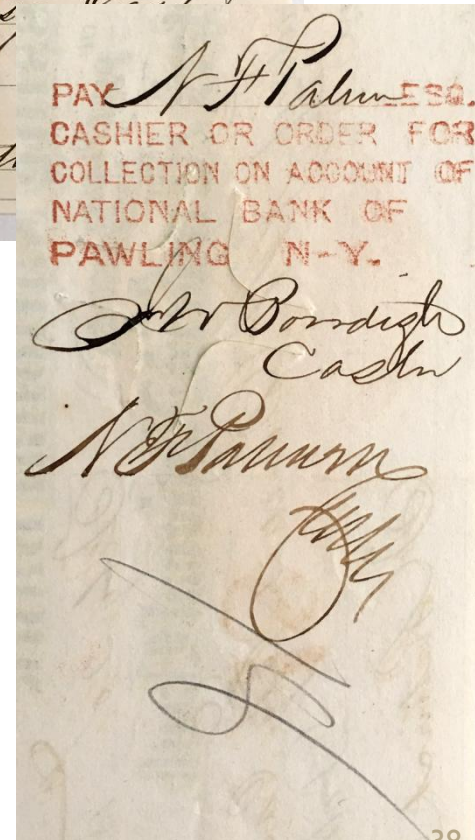 PAY N F Palm ESQ.
CASHIER OR ORDER FOR
COLLECTION ON ACCOUNT OF
NATIONAL BANK OF
PAWLING N-Y.
Bowdish
Cash
N F Palmer